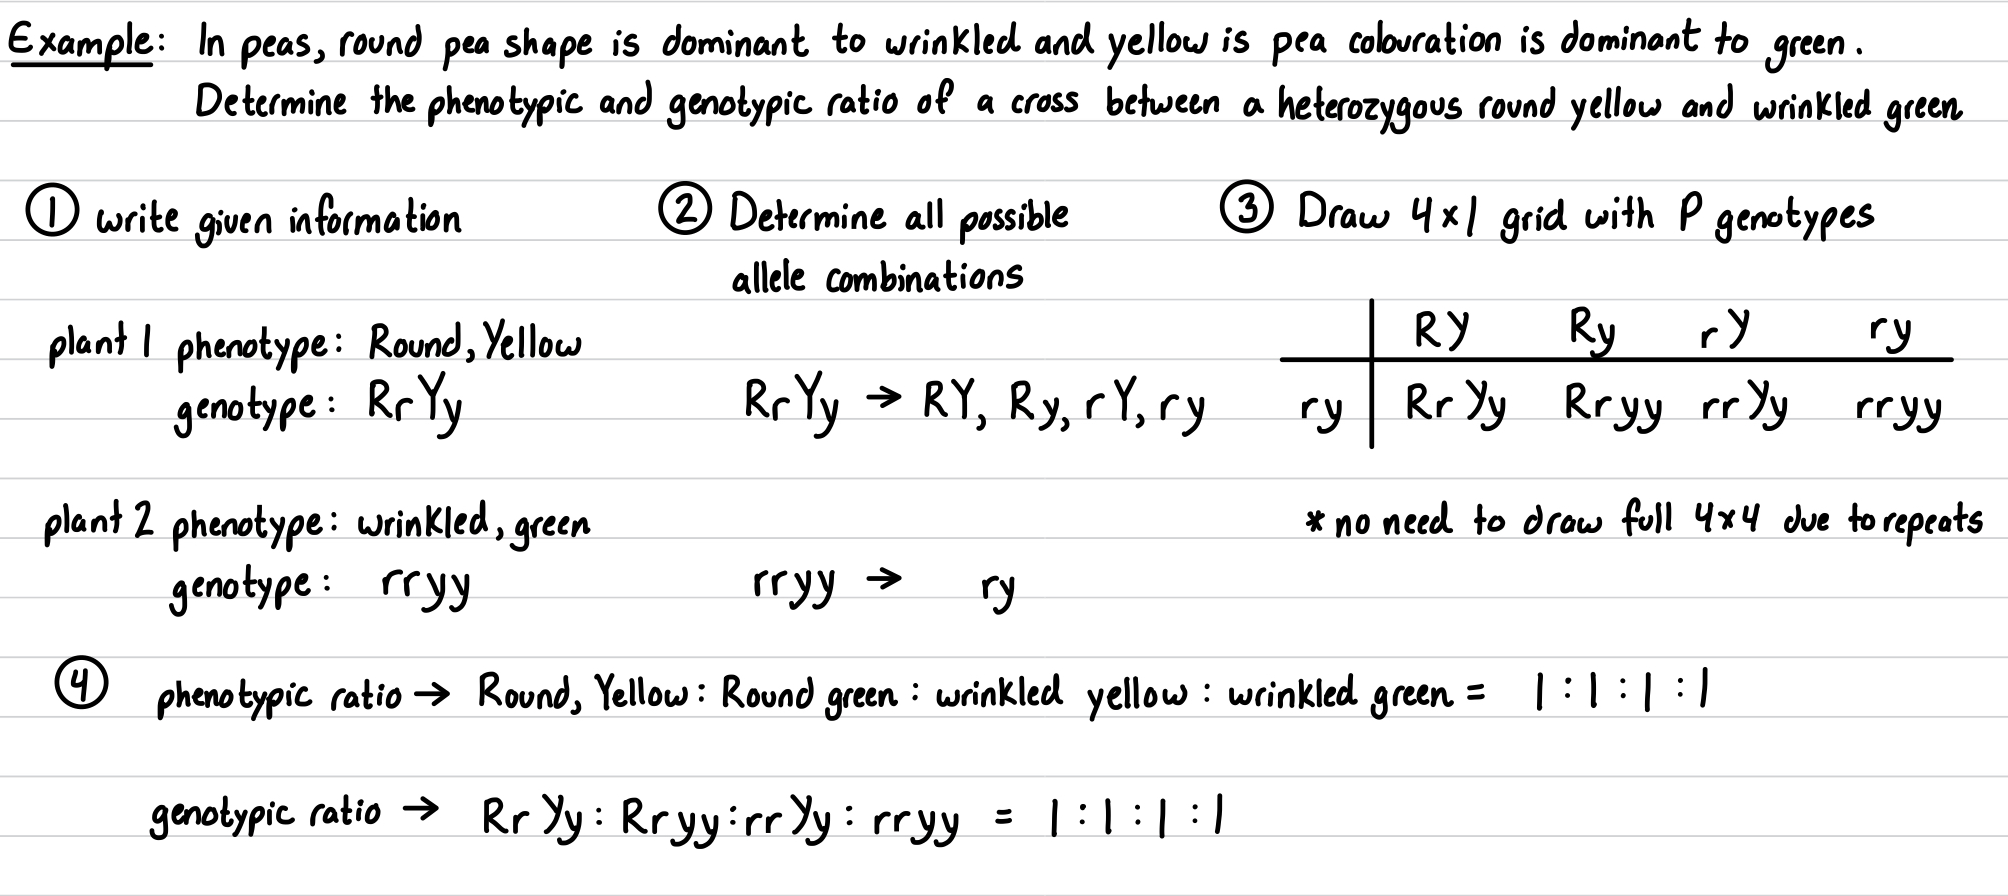 Example: In peas, round pea shape is dominant to wrinkled and yellow is pea colouration is dominant to green.
Determine the phenotypic and genotypic ratio of a cross between a heterozygous round yellow and wrinkled green
① write given information
plant 1 phenotype: Round, Yellow
genotype: RrYy
plant 2 phenotype: wrinkled, green
genotype: rryy
② Determine all possible
allele combinations
RrYy → RY, Ry, rY, ry
rryy → ry
③ Draw 4x1 grid with P genotypes
RY Ry rY ry
ry RrYy Rryy rrYy rryy
* no need to draw full 4x4 due to repeats
④ phenotypic ratio → Round, Yellow : Round green : wrinkled yellow : wrinkled green = 1 : 1 : 1 : 1
genotypic ratio → RrYy : Rryy : rrYy : rryy = 1 : 1 : 1 : 1